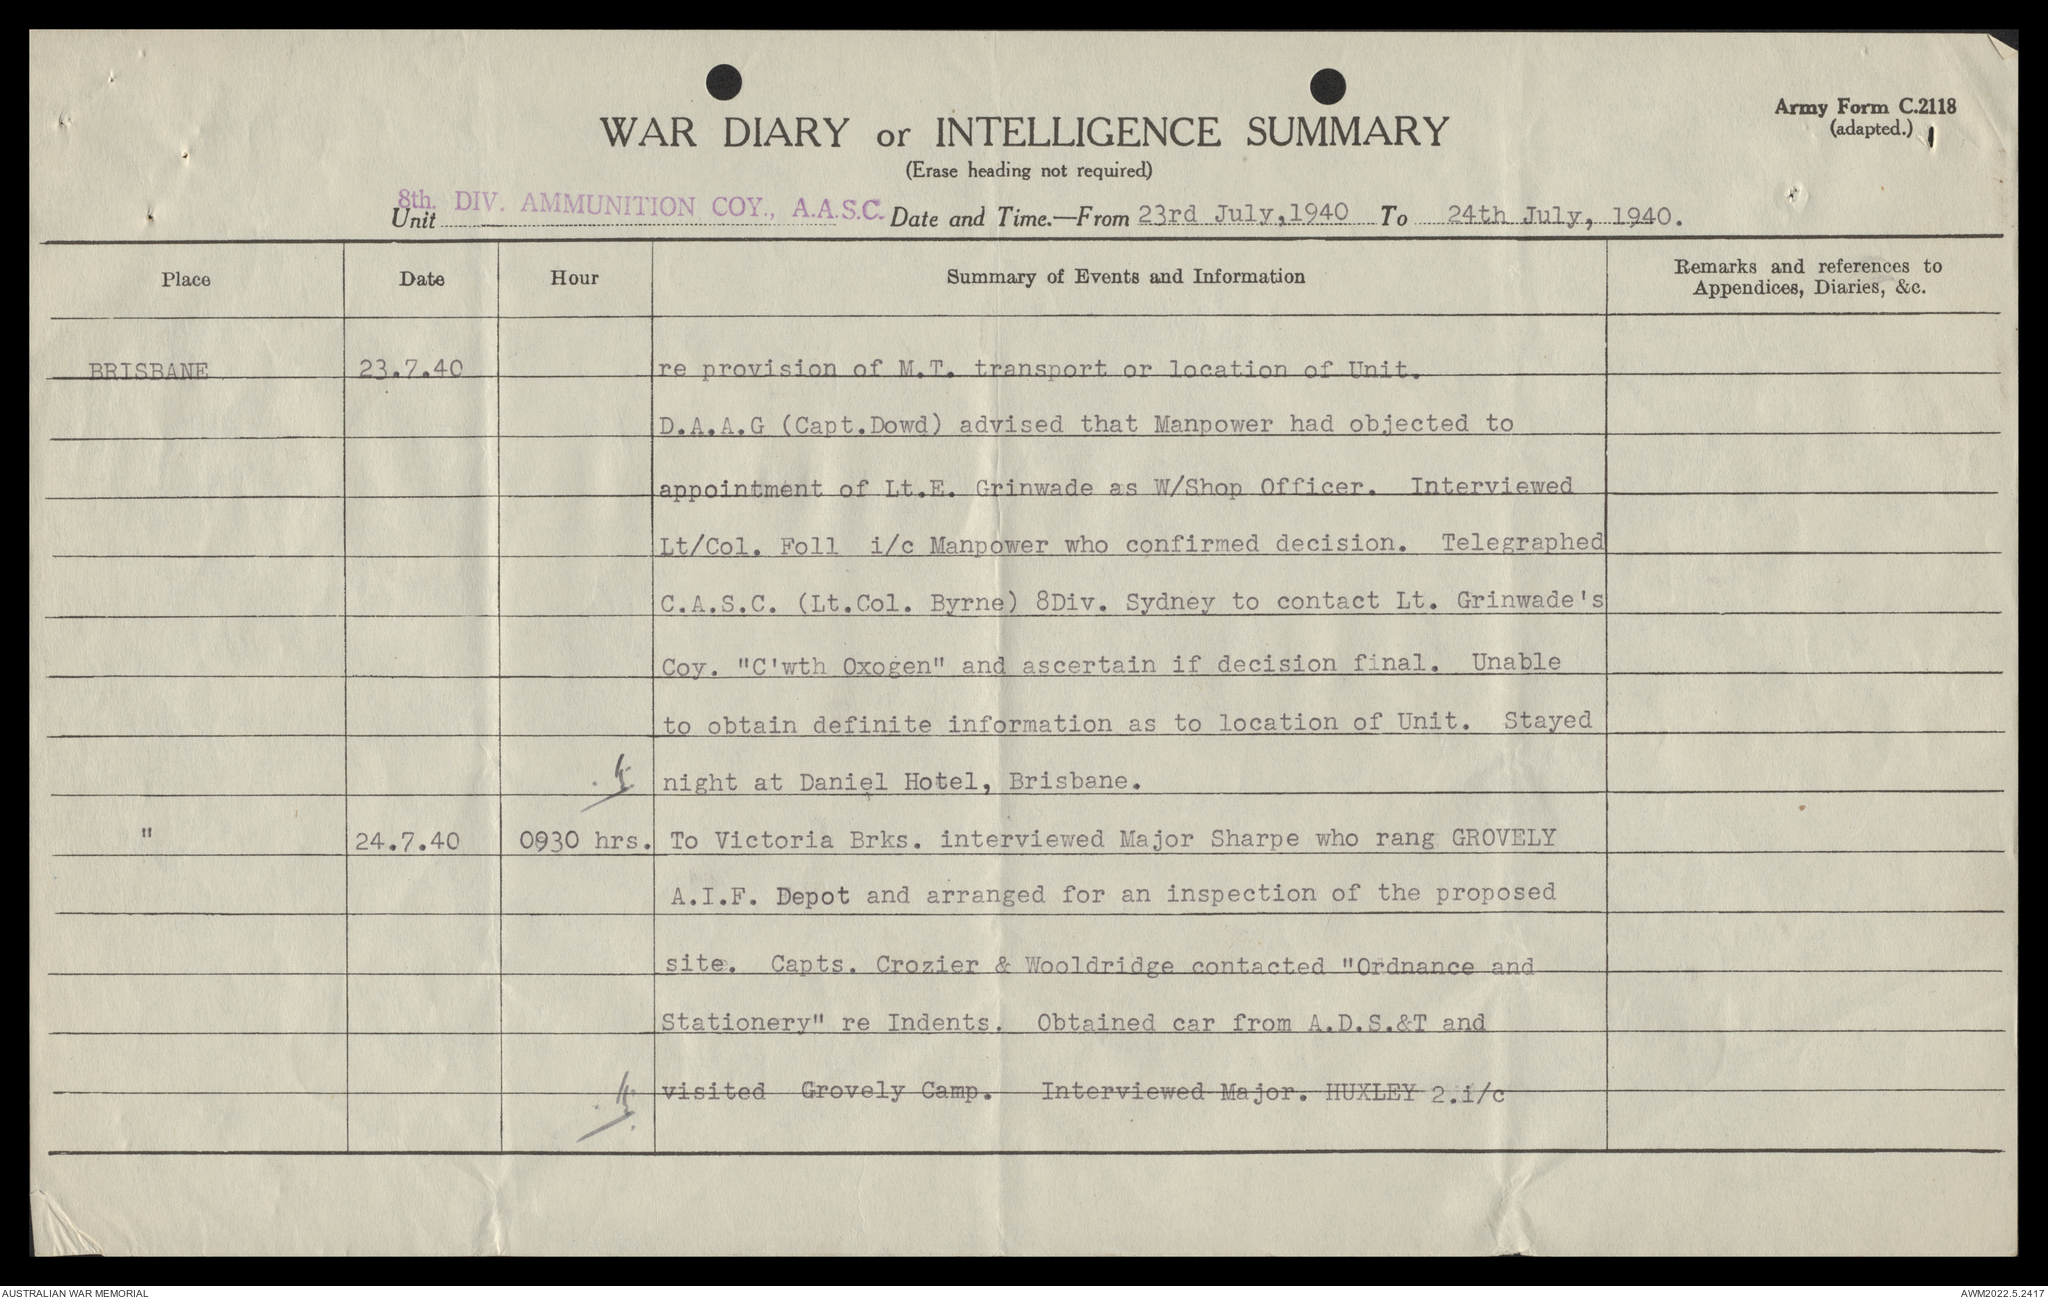 Army Form C.2118
(adapted.)
WAR DIARY or INTELLIGENCE SUMMARY
(Erase heading not required)
Unit 8th. DIV. AMMUNITION COY., A.A.S.C. Date and Time.—From 23rd July,1940 To 24th July, 1940.
Place Date Hour Summary of Events and Information Remarks and references to
Appendices, Diaries, &c.
BRISBANE 23.7.40 re provision of M.T. transport or location of Unit.
D.A.A.G (Capt.Dowd) advised that Manpower had objected to
appointment of Lt.E. Grinwade as W/Shop Officer. Interviewed
Lt/Col. Foll i/c Manpower who confirmed decision. Telegraphed
C.A.S.C. (Lt.Col. Byrne) 8Div. Sydney to contact Lt. Grinwade's
Coy. "C'wth Oxogen" and ascertain if decision final. Unable
to obtain definite information as to location of Unit. Stayed
night at Daniel Hotel, Brisbane.
" 24.7.40 0930 hrs. To Victoria Brks. interviewed Major Sharpe who rang GROVELY
A.I.F. Depot and arranged for an inspection of the proposed
site. Capts. Crozier & Wooldridge contacted "Ordnance and
Stationery" re Indents. Obtained car from A.D.S.&T and
visited Grovely Camp. Interviewed Major. HUXLEY 2.i/c
AUSTRALIAN WAR MEMORIAL AWM2022.5.2417